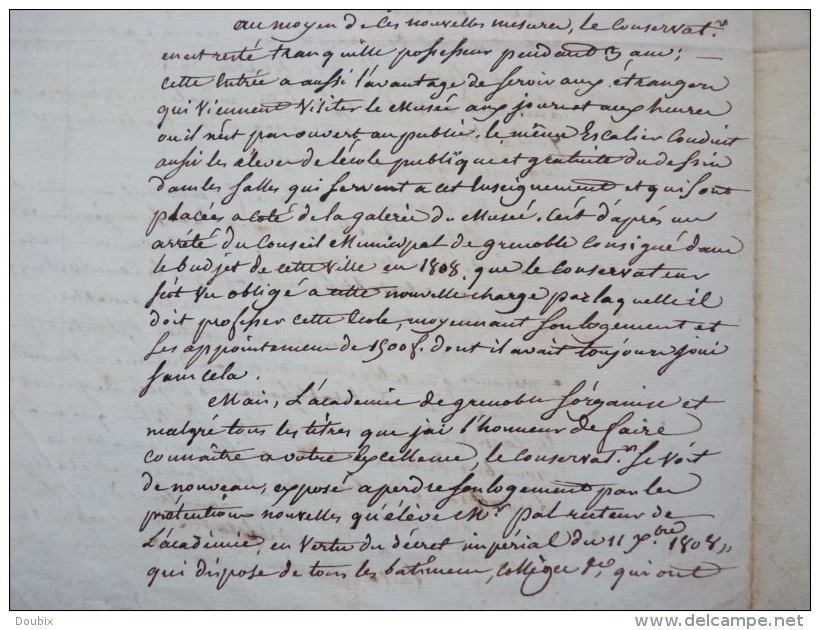 au moyen de ces nouvelles mesures, le Conservat.r
en est resté tranquille possesseur pendant 3 ans; —
cette Entrée a aussi l'avantage de servir aux étrangers
qui viennent visiter le Musée aux jours et aux heures
où il n'est pas ouvert au public. le même Escalier Conduit
aussi les élèves de l'école publique et gratuite du dessin
dans les salles qui servent a cet Enseignement et qui sont
placées a coté de la galerie du Musée. C'est d'après un
arrêté du Conseil Municipal de grenoble consigné dans
le budjet de cette ville en 1808. que le Conservateur
s'est vu obligé a cette nouvelle charge par laquelle il
doit professer cette école, moyennant son logement et
ses appointemens de 1500f. dont il avait toujours joui
sans cela.
Mais, L'académie de grenoble s'organise et
malgré tous les titres que j'ai l'honneur de faire
connaître a votre excellence, le Conservat.r se voit
de nouveau, exposé a perdre son logement par les
prétentions nouvelles qu'élève Mr. Pal recteur de
L'académie, en vertu du décret impérial du 11 X.bre 1808,,
qui dispose de tous les batimens, collèges &a, qui ont
Doubix
delcampe.net